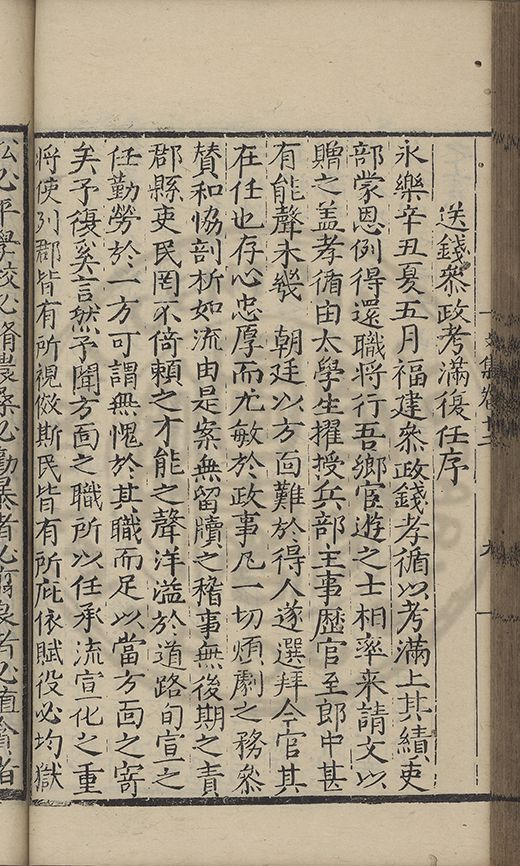 送錢參政考滿復任序
永樂辛丑夏五月福建參政錢孝循以考滿上其績吏
部蒙恩例得還職將行吾鄉宦遊之士相率来請文以
贈之盖孝循由太學生擢授兵部主事歷官至郎中甚
有能聲未幾 朝廷以方面難於得人遂選拜今官其
在任也存心忠厚而尤敏於政事凡一切煩劇之務參
賛和協剖析如流由是案無留牘之稽事無後期之責
郡縣吏民罔不倚賴之才能之聲洋溢於道路旬宣之
任勤勞於一方可謂無愧於其職而足以當方面之寄
矣予復奚言然予聞方面之職所以任承流宣化之重
將使列郡皆有所視倣斯民皆有所庇依賦役必均獄
訟必平學校必脩農桑必勸暴者必翦良者必植貪者
集卷十二
九